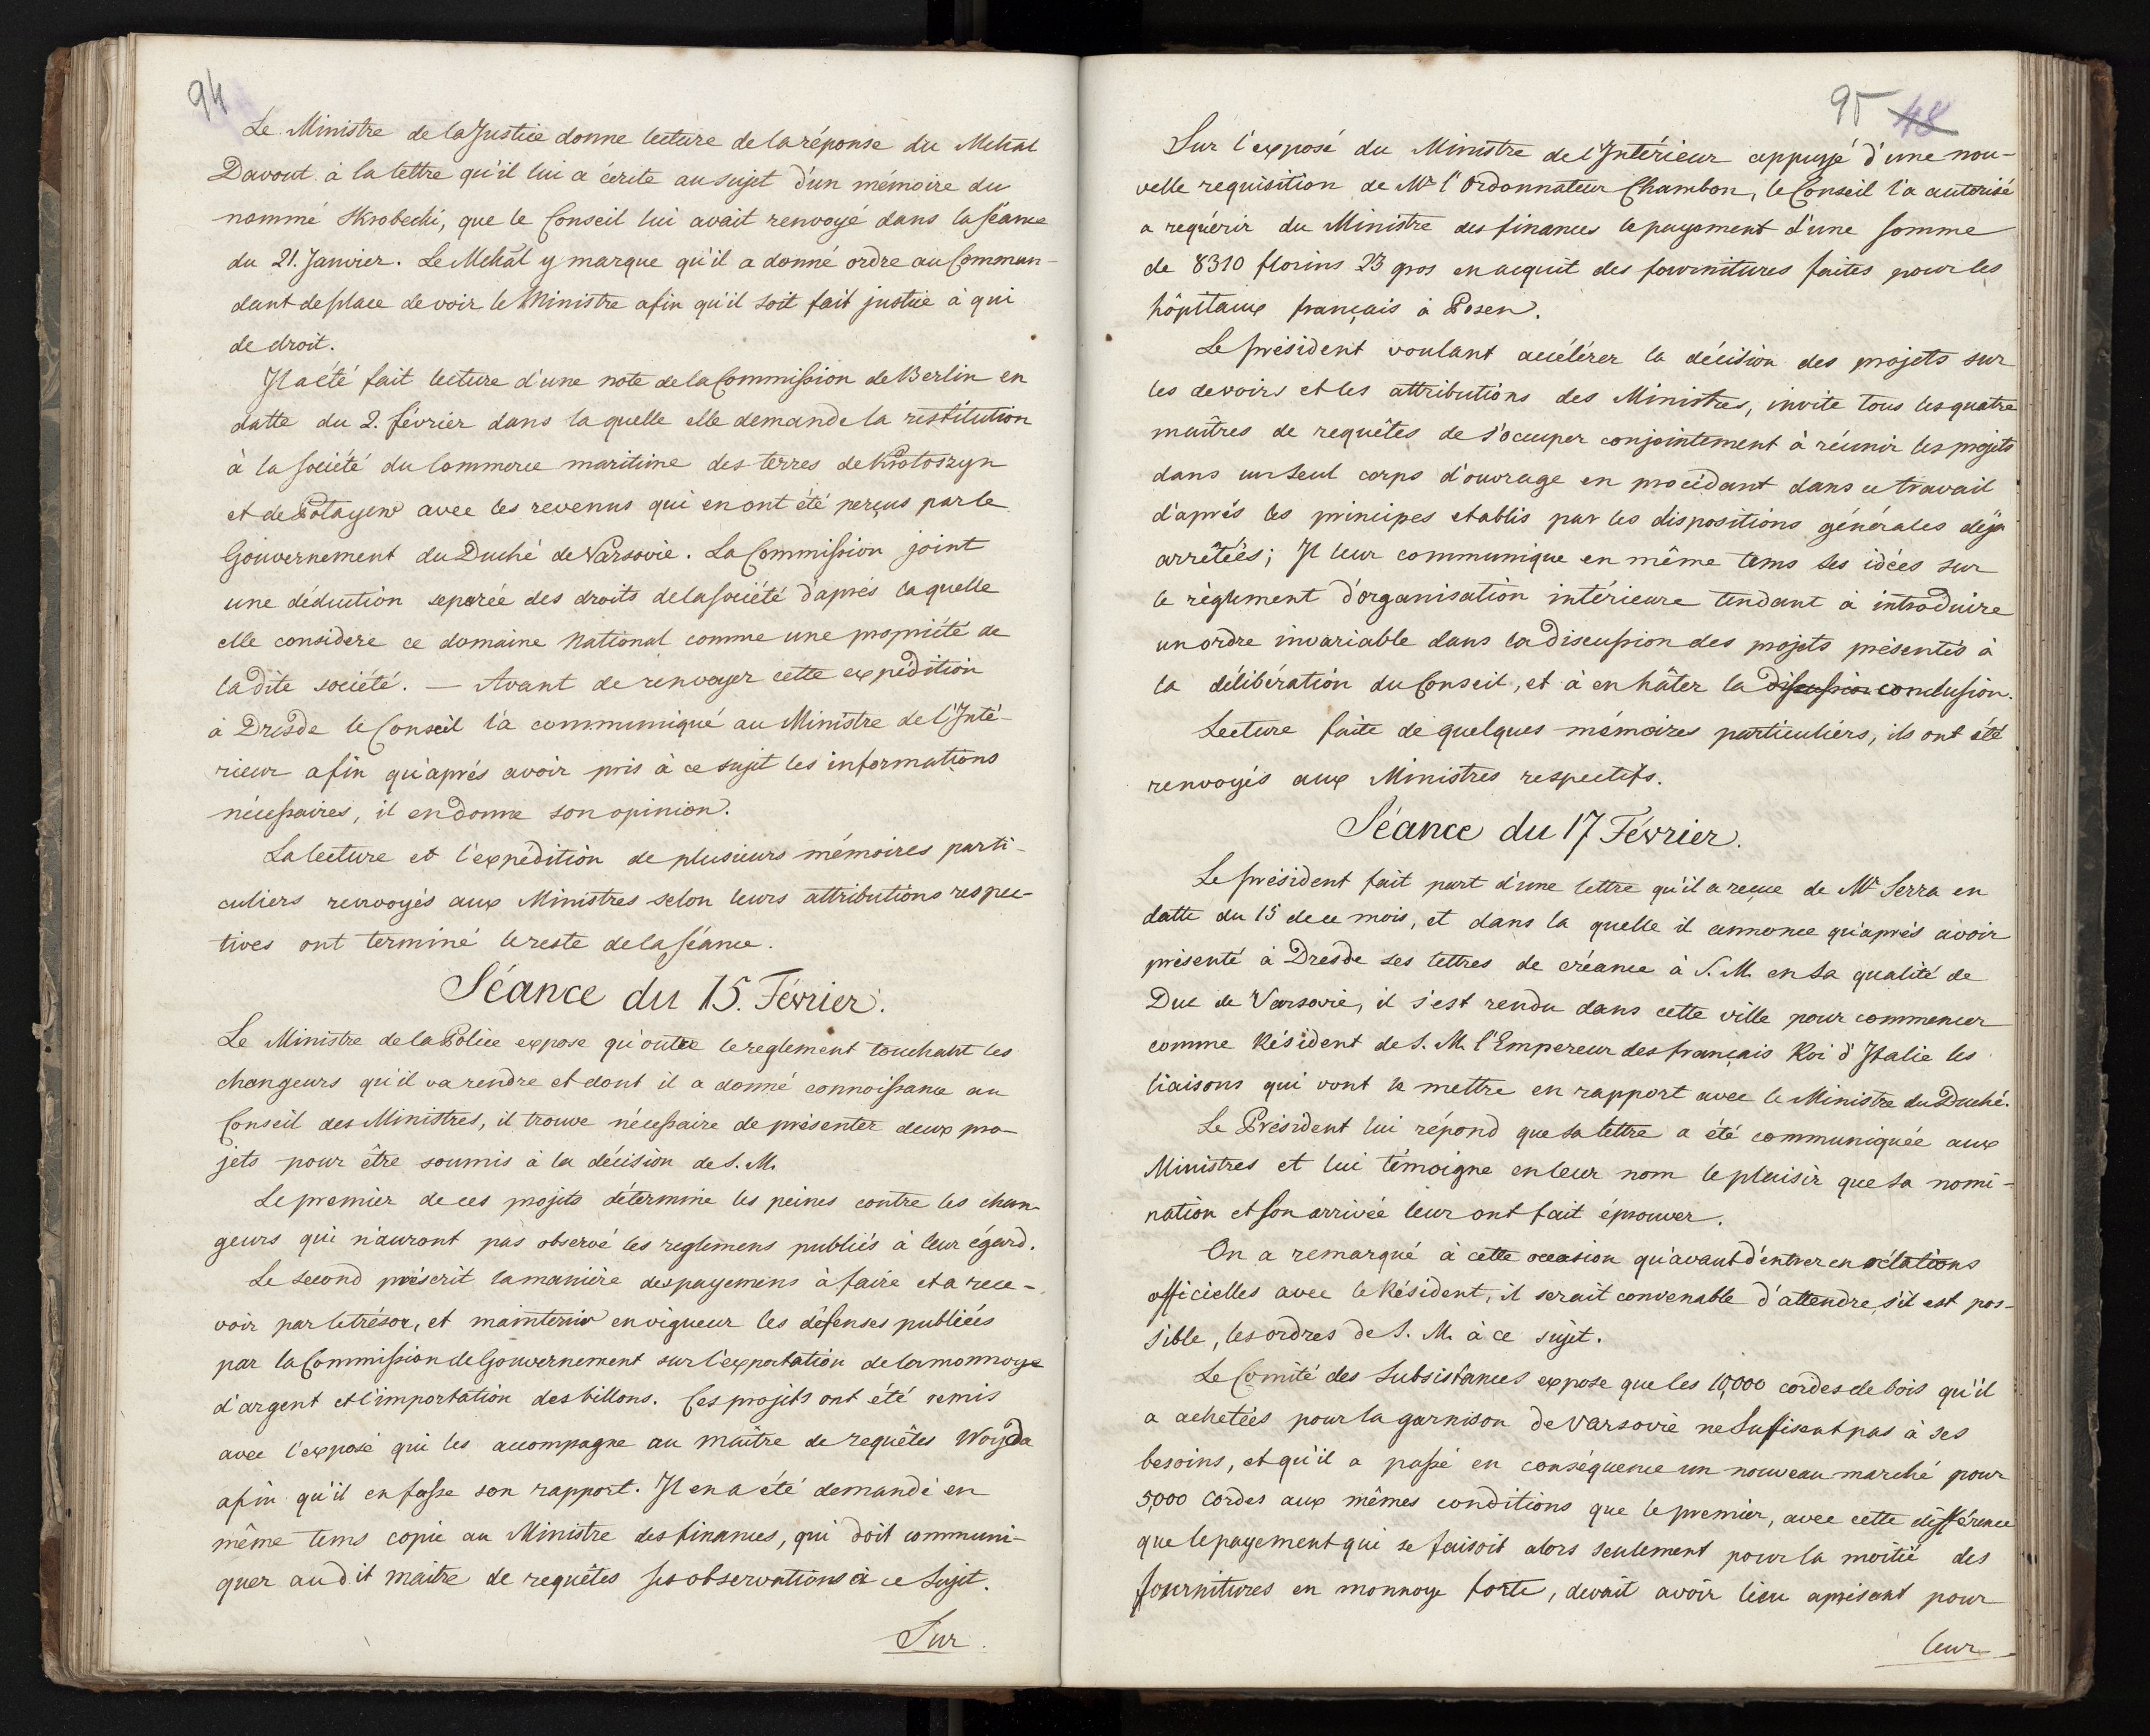 94
Le Ministre de la Justice donne lecture de la réponse du Mchal
Davout à la lettre qu'il lui a écrite au sujet d'un mémoire du
nommé Skrobecki, que le Conseil lui avait renvoyé dans la séance
du 21. Janvier. Le Mchal y marque qu'il a donné ordre au Comman-
dant de place de voir le Ministre afin qu'il soit fait justice à qui
de droit.
Il a été fait lecture d'une note de la Commission de Berlin en
datte du 2. février dans la quelle elle demande la restitution
à la société du Commerce maritime des terres de Krotoszyn
et de avec les revenus qui en ont été perçus par le
Gouvernement du Duché de Varsovie. La Commission joint
une déduction separée des droits de la société d'aprés laquelle
elle considere ce domaine National comme une propriété de
la dite société. — Avant de renvoyer cette expédition
à Dresde le Conseil l'a communiqué au Ministre de l'Inté-
rieur afin qu'aprés avoir pris à ce sujet les informations
nécessaires, il en donne son opinion.
La lecture et l'expédition de plusieurs mémoires parti-
culiers renvoyés aux Ministres selon leurs attributions respec-
tives ont terminé le reste de la séance.
Séance du 15. Février.
Le Ministre de la Police expose qu'outre le reglement touchant les
changeurs qu'il va rendre et dont il a donné connoissance au
Conseil des Ministres, il trouve nécessaire de présenter deux pro-
jets pour être soumis à la décision de S. M.
Le premier de ces projets détermine les peines contre les chan-
geurs qui n'auront pas observé les reglemens publiés à leur égard.
Le second préscrit la manière des payemens à faire et a rece-
voir par le trésor, et maintenir en vigueur les défenses publiées
par la Commission de Gouvernement sur l'exportation de la monnoye
d'argent et l'importation des billons. Ces projets ont été remis
avec l'exposé qui les accompagne au maître de requêtes Woyda
afin qu'il en fasse son rapport. Il en a été demandé en
même tems copie au Ministre des finances, qui doit communi-
quer au dit maitre de requêtes ses observations à ce sujet.
Sur
95 48
Sur l'exposé du Ministre de l'Intérieur appuyé d'une nou-
velle requisition de Mr l'Ordonnateur Chambon, le Conseil l'a autorisé
a requérir du Ministre des finances le payement d'une somme
de 8310 florins 23 gros en acquit des fournitures faites pour les
hôpitaux français à Posen.
Le président voulant accélérer la décision des projets sur
les devoirs et les attributions des Ministres, invite tous les quatre
maîtres de requêtes de s'occuper conjointement à réunir les projets
dans un seul corps d'ouvrage en procédant dans ce travail
d'aprés les principes etablis par les dispositions générales déja
arrêtées; Il leur communique en même tems ses idées sur
le règlement d'organisation intérieure tendant à introduire
un ordre invariable dans la discussion des projets présentés à
la délibération du Conseil, et à en hâter la discussion conclusion.
Lecture faite de quelques mémoires particuliérs, ils ont été
renvoyés aux Ministres respectifs.
Séance du 17 Février.
Le président fait part d'une lettre qu'il a reçue de Mr Serra en
datte du 15 de ce mois, et dans la quelle il annonce qu'aprés avoir
présenté à Dresde ses lettres de créance à S. M. en sa qualité de
Duc de Varsovie, il s'est rendu dans cette ville pour commencer
comme Résident de S. M. l'Empereur des français Roi d'Italie les
liaisons qui vont le mettre en rapport avec le Ministre du Duché.
Le Président lui répond que sa lettre a été communiquée aux
Ministres et lui témoigne en leur nom le plaisir que sa nomi-
nation et son arrivée leur ont fait éprouver.
On a remarqué à cette occasion qu'avant d'entrer en rélations
officielles avec le Résident, il serait convenable d'attendre, s'il est pos-
sible, les ordres de S. M. à ce sujet.
Le Comité des Subsistances expose que les 10,000 cordes de bois qu'il
a achetées pour la garnison de Varsovie ne suffisent pas à ses
besoins, et qu'il a passé en conséquence un nouveau marché pour
5,000 cordes aux mêmes conditions que le premier, avec cette différence
que le payement qui se faisoit alors seulement pour la moitié des
fournitures en monnoye forte, devait avoir lieu aprésent pour
leur